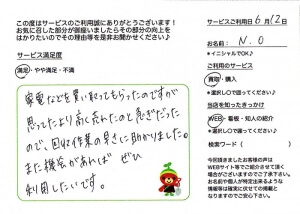 この度はサービスのご利用誠にありがとうございます!
お気に召した部分が御座いましたらその部分の向上を
はかりたいのでその理由等を是非お聞かせください♪
サービス満足度
満足・やや満足・不満
家電などを買い取ってもらったのですが
思ってたより高く売れたのと急ぎだった
ので、回収作業の早さに助かりました。
また機会があれば ぜひ
利用したいです。
サービスご利用日 6月12日
お名前: N.O
*イニシャルでOK♪
ご利用のサービス
買取・購入
*選択しOで囲ってください♪
当店を知ったきっかけ
WEB・看板・知人の紹介
*選択しOで囲ってください♪
検索ワード( )
今回頂きましたお客様の声は
WEBサイト等でご紹介させて頂く
場合がございますのでご了承下さい。
お名前や個人が特定出来るような
情報等は確実に伏せての掲載と
なりますのでご安心くださいませ。